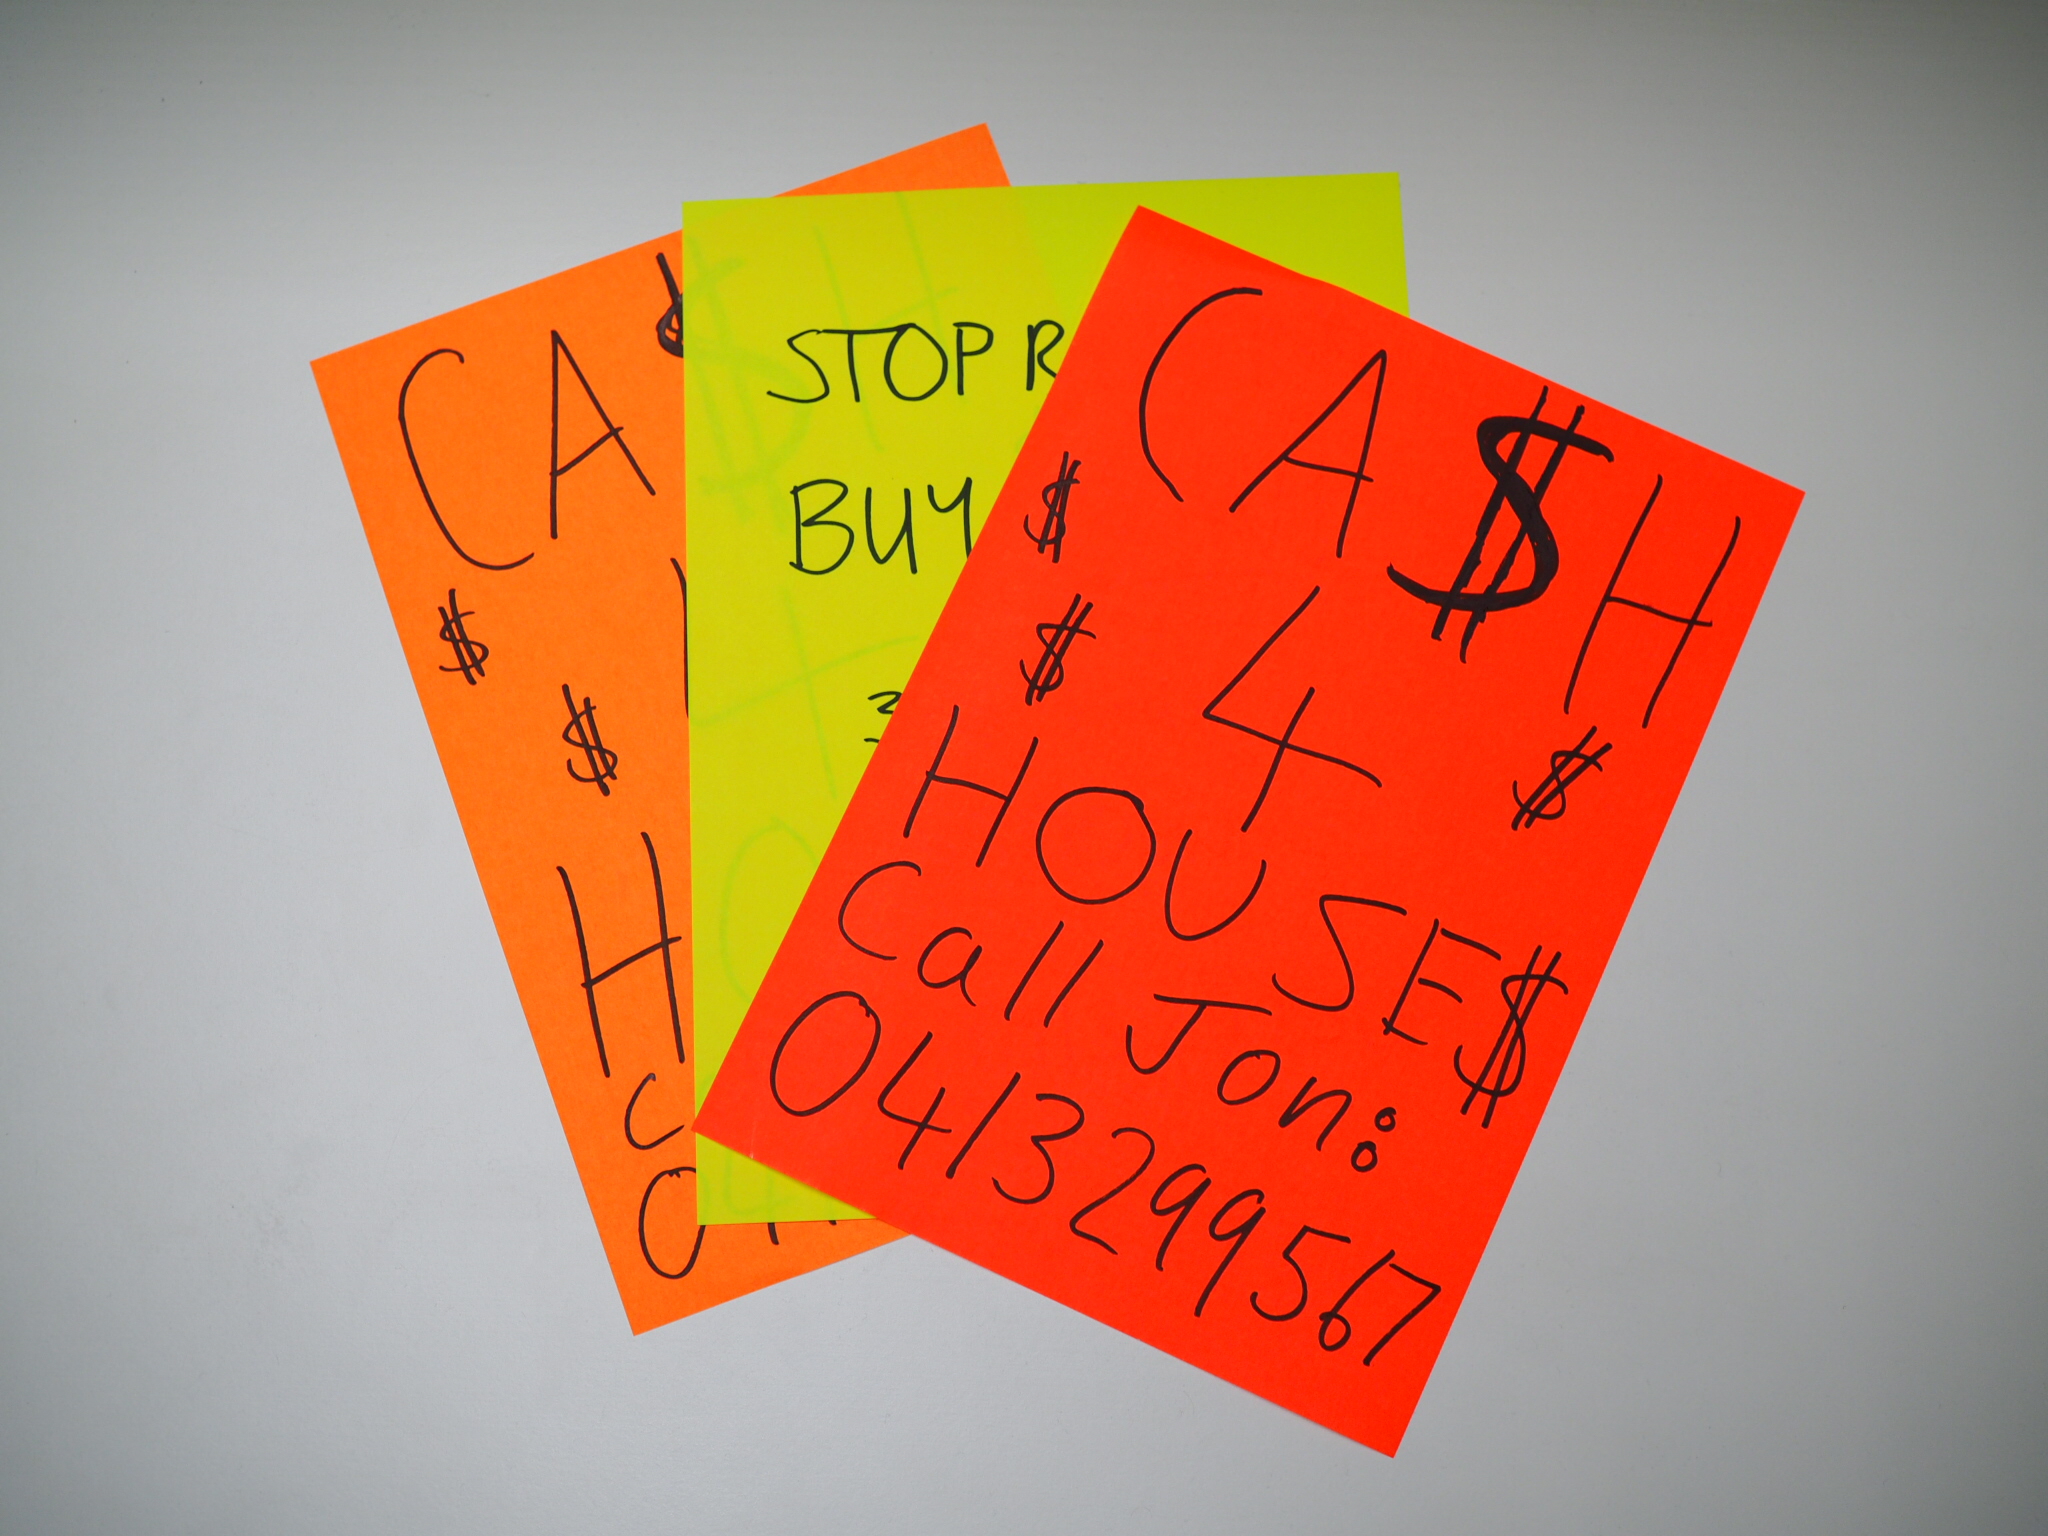 CA
$
$
H
C
STOP R
BUY
CA$H
$
$
4
$
HOUSE$
Call Jon:
0413299567